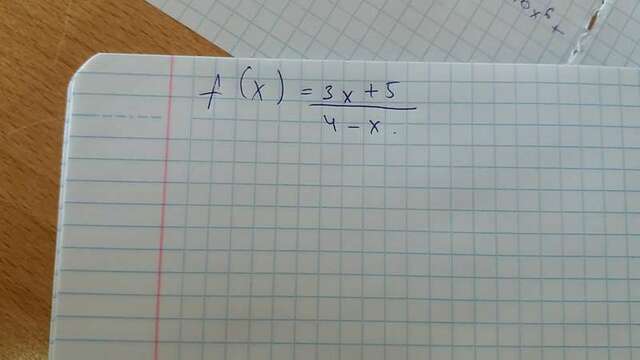 f (x) = 3x + 5
4 - x.